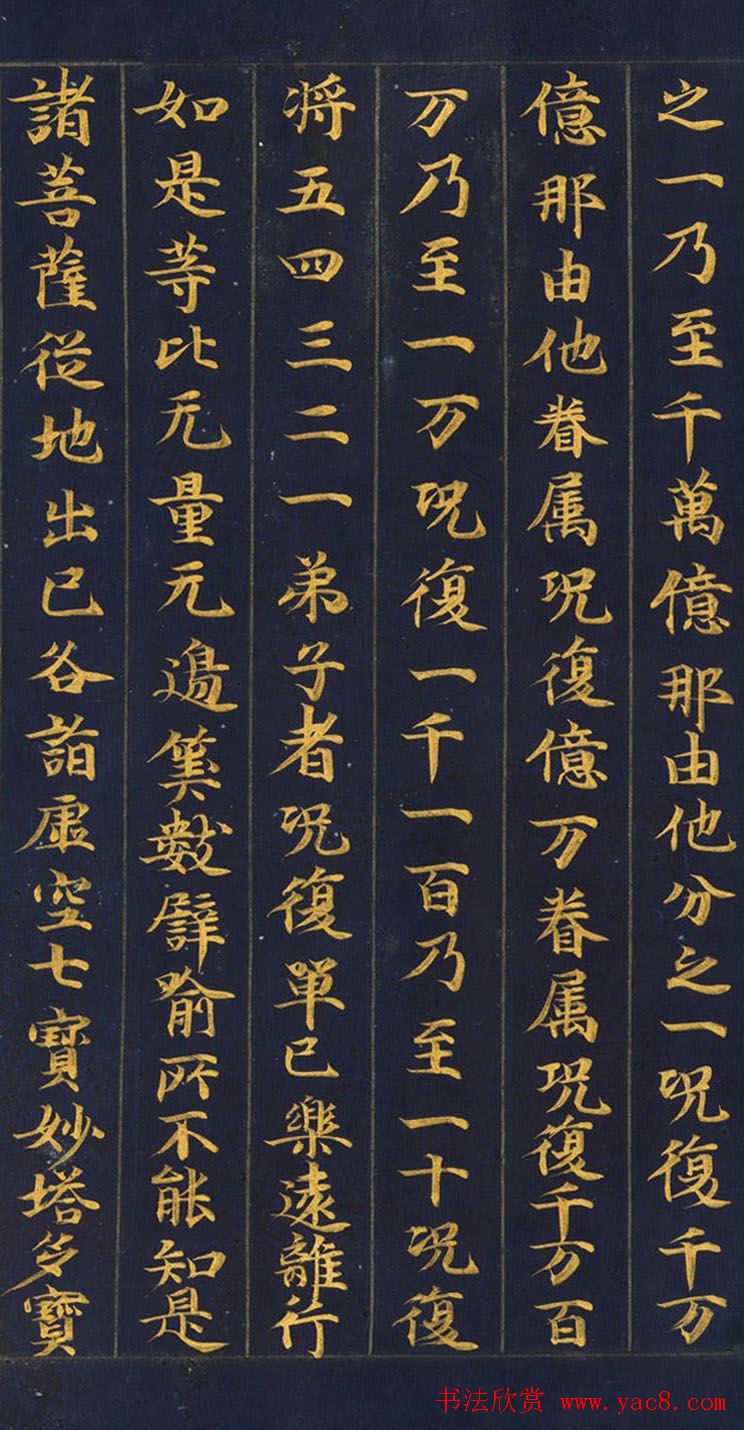 之一乃至千萬億那由他分之一況復千万
億那由他眷属況復億万眷属況復千万百
万乃至一万況復一千一百乃至一十況復
将五四三二一弟子者況復單已樂遠離行
如是等比无量无邊筭數譬喻所不能知是
諸菩薩從地出已各詣虛空七寶妙塔多寶
书法欣赏 www.yac8.com